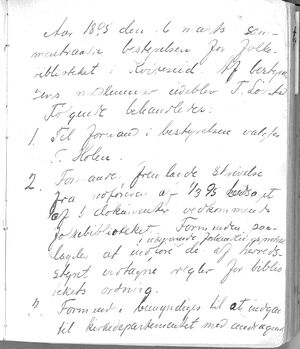 Aar 1895 den 6 marts sam-
mentraadte bestyrelsen for folke-
biblioteket i Kviteseid. Af bestyrel-
sens medlemmer udeblev T.
Følgende behandledes:
1. Til formand i bestyrelsen valgtes
T. Holen.
2. Formanden fremlagde skrivelse
fra ordføreren af 1/3 95 ledsaget
af 5 dokumenter vedkommende
folkebiblioteket. Formanden paa-
lagdes at indføre i
de af herreds-
styret vedtagne regler for biblio-
tekets ordning.
3. Formanden bemyndiges til at indgaa
til kirkedepartementet med andragende